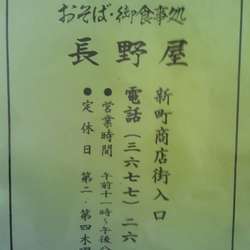 おそば・御食事処
長野屋
新町商店街入口
電話(三六七七)二六
●営業時間 午前十一時~午後
●定休日 第二・第四木